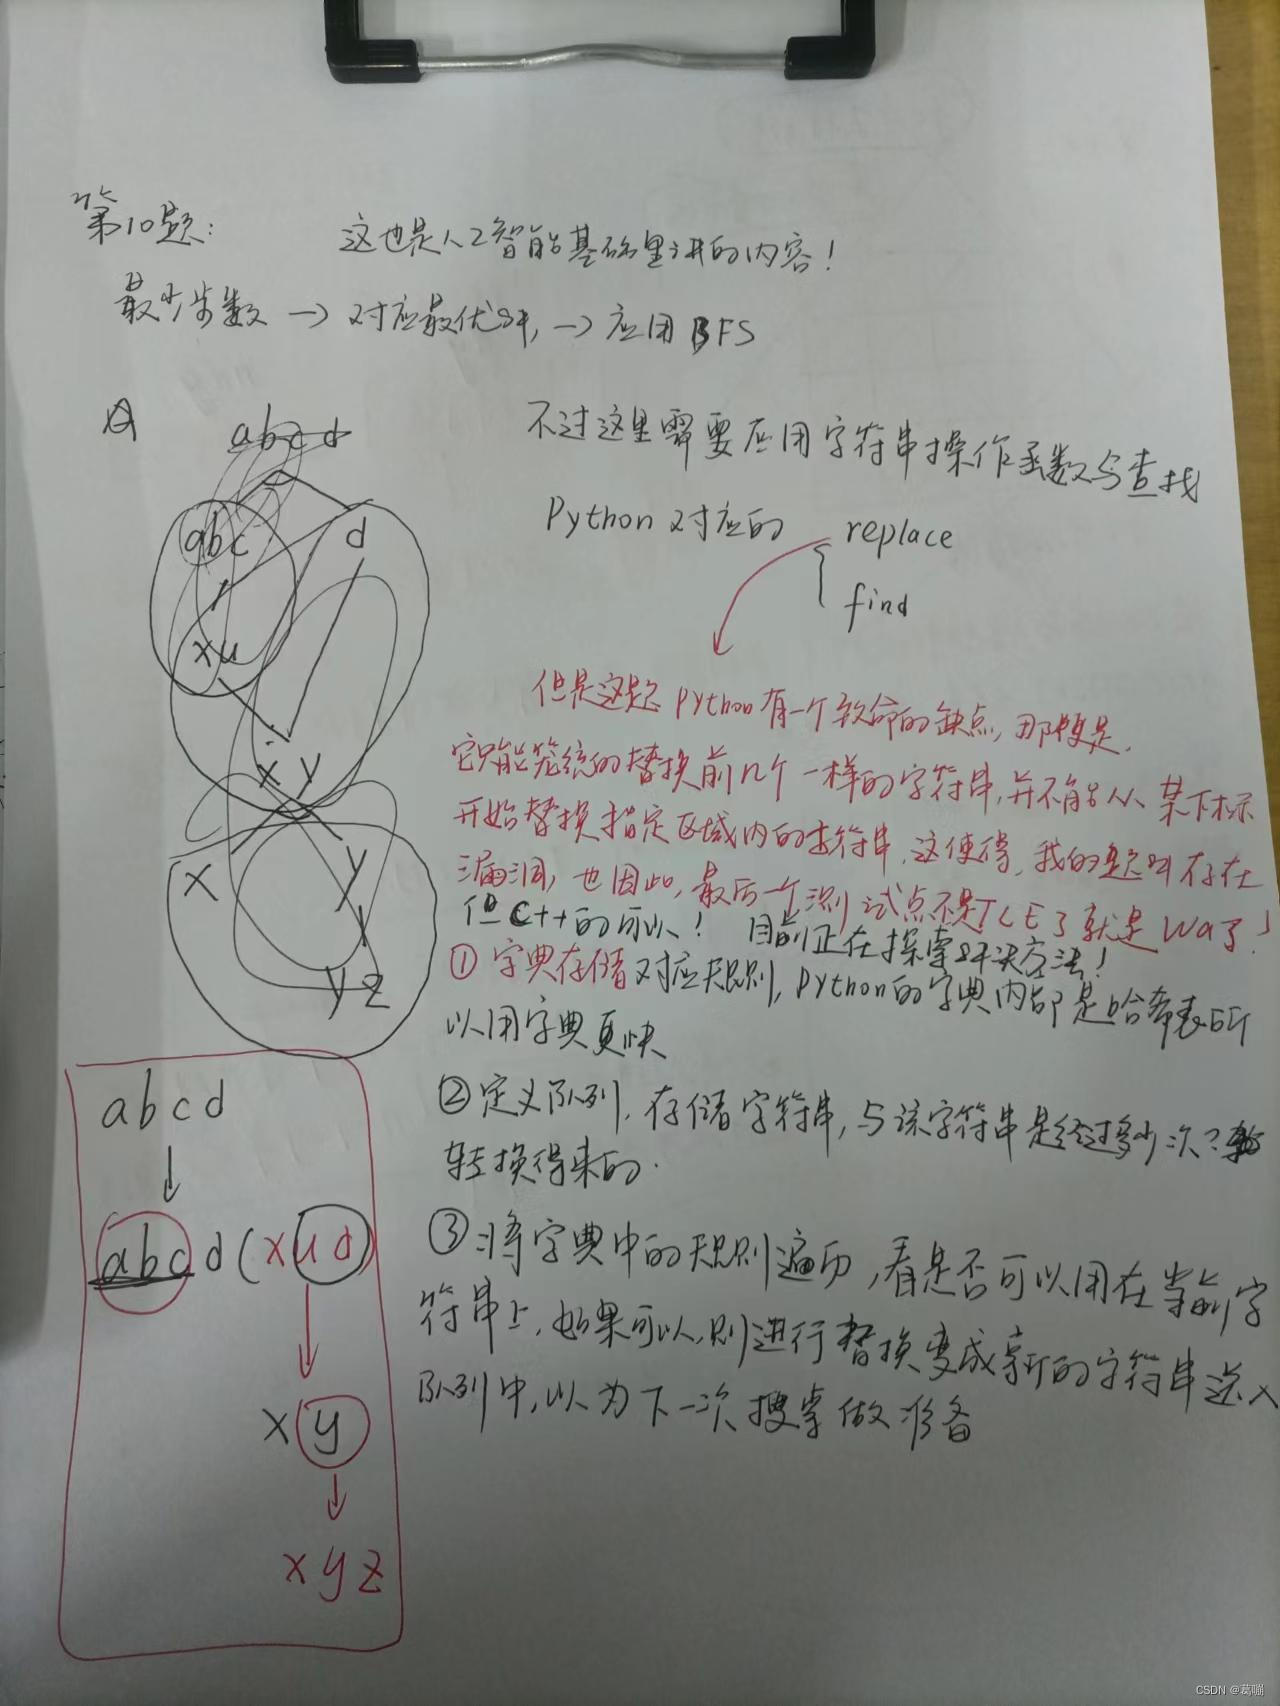 第10题:
这也是人工智能基础里讲的内容!
最少步数 → 对应最优解, → 应用BFS
不过这里需要应用字符串操作函数与查找
Python 对应的 replace
find
但是这题 Python有一个致命的缺点, 那便是,
它只能笼统的替换前几个一样的字符串, 并不能从某下标
开始替换指定区域内的字符串, 这使得, 我的题目存在
漏洞, 也因此, 最后一个测试点不是TLE了就是WA了!
但C++的可以! 目前正在探索解决方法!
① 字典存储对应规则, Python的字典内部是哈希表所
以用字典更快
② 定义队列, 存储字符串, 与该字符串是经过多少次?
转换得来的.
③ 将字典中的规则遍历, 看是否可以用在当前字
符串上, 如果可以, 则进行替换变成新的字符串送入
队列中, 以为下一次搜索做准备
abcd
abc d
xu
x y
x y
yz
abcd
abcd(xud)
xy
xyz
CSDN @葛嘣